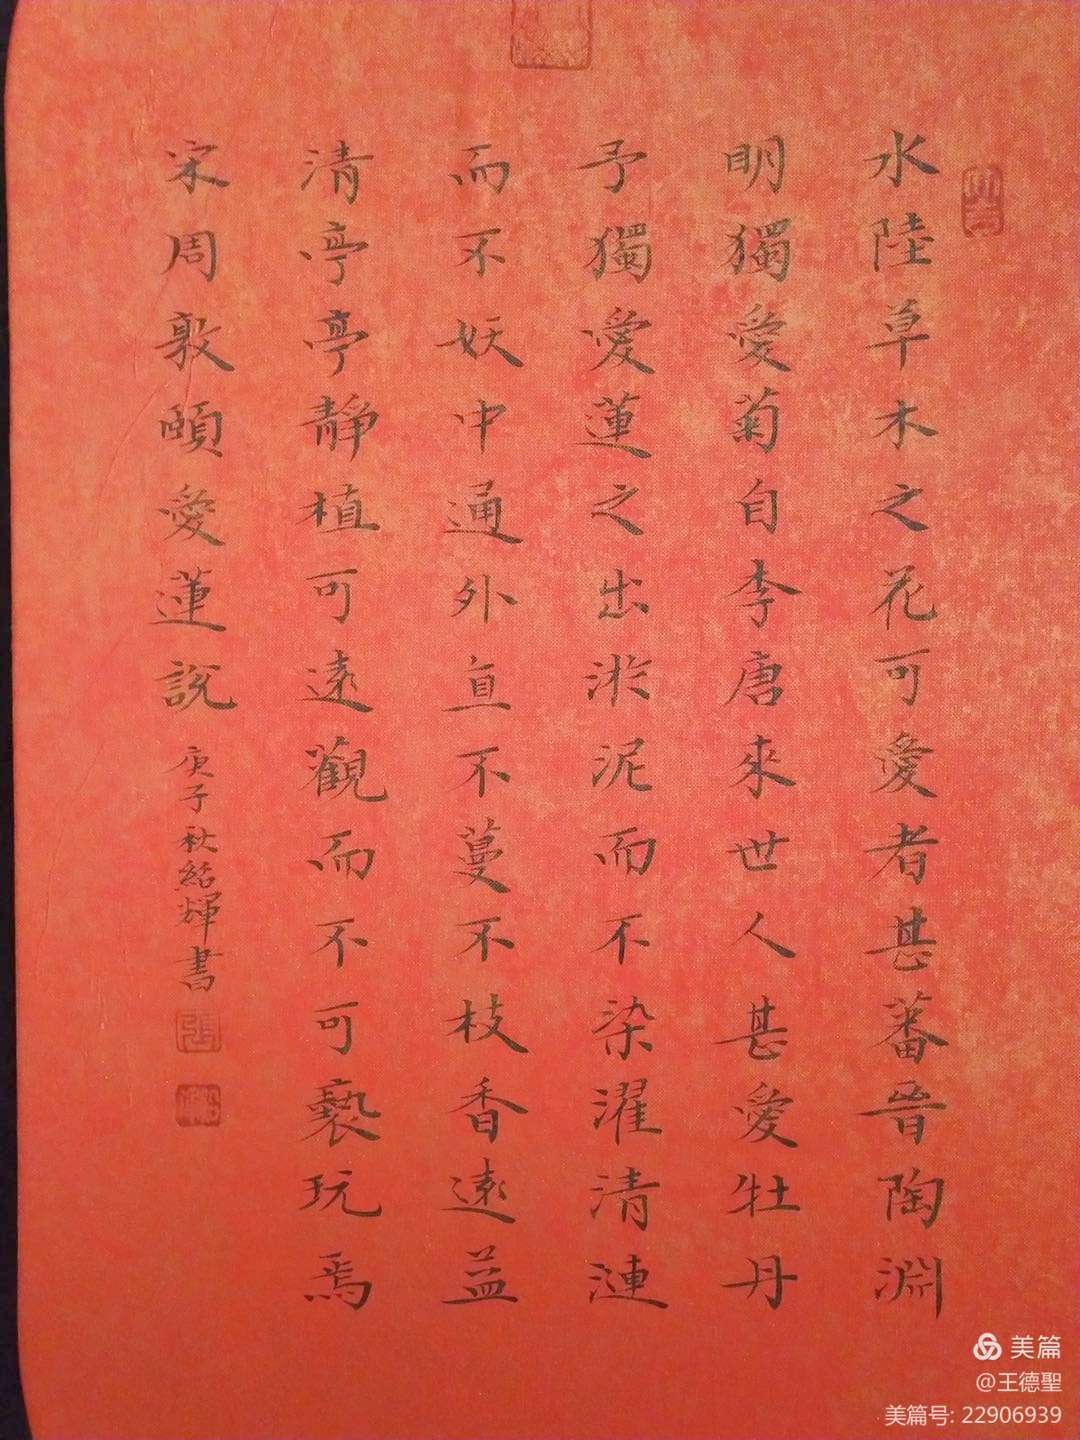 水陸草木之花可愛者甚蕃晉陶淵
明獨愛菊自李唐來世人甚愛牡丹
予獨愛蓮之出淤泥而不染濯清漣
而不妖中通外直不蔓不枝香遠益
清亭亭靜植可遠觀而不可褻玩焉
宋周敦頤愛蓮說
庚子秋紹輝書
張
美篇
@王德聖
美篇号: 22906939